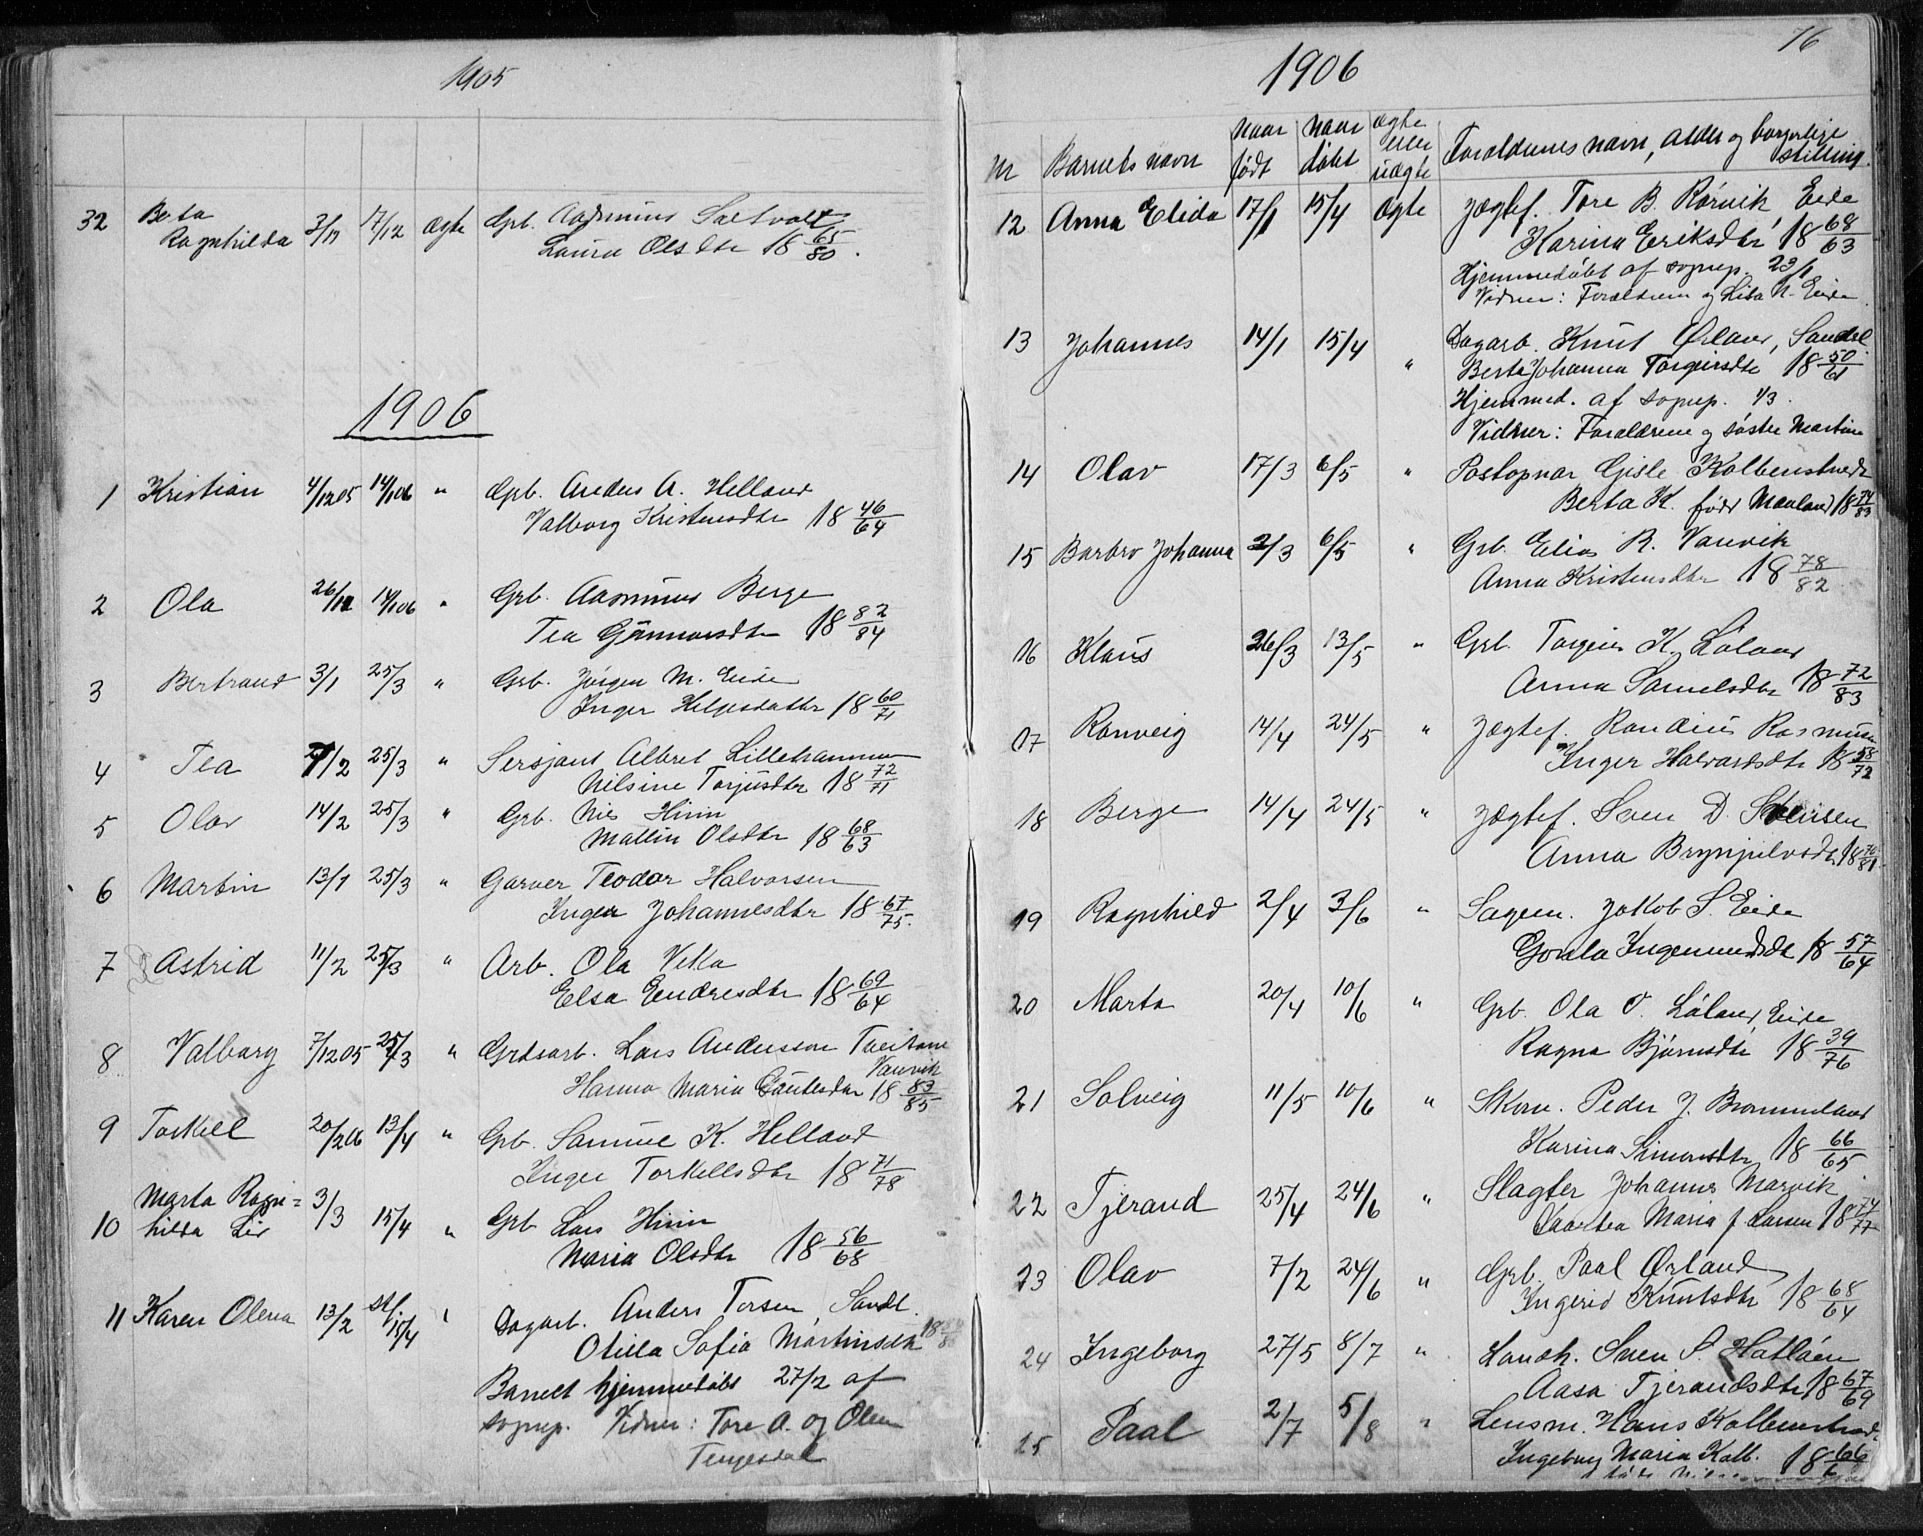 1905
32 Berta Ragnhilda 3/11 17/12 ægte Grb. Aasmund Saltvold
Laura Olsdtr 18 65/80.
1906
1 Kristian 4/12 05 14/1 06 " Grb. Anders A. Helland
Valborg Kristensdtr 18 46/64
2 Ola 26/12 14/1 06 " Grb. Aasmund Berge
Tea Gunnarsdtr 18 82/84
3 Bertrand 3/1 25/3 " Grb. Jörgen M. Eide
Inger Helgesdatter 18 60/71
4 Tea 7/2 25/3 " Sersjant Albret Lillehammer
Nilsine Torjusdtr 18 72/71
5 Olav 14/2 25/3 " Grb. Nils Hiim
Mallin Olsdtr 18 68/63
6 Martin 13/1 25/3 " Garver Teodor Halvorsen
Inger Johannesdtr 18 67/75.
7 Astrid 11/2 25/3 " Arb. Ola Vika
Elsa Endresdtr 18 69/64
8 Valborg 7/12 05 25/3 " Grdsarb. Lars Andersson Tveitane
Vanvik
Hanna Maria Gautesdtr 18 83/85
9 Torkell 20/2 06 13/4 " Grb. Samuel K. Helland
Inger Torkellsdtr 18 71/78
10 Marta Ragn=
hilda Liv 3/3 15/4 " Grb Lars Hiim
Maria Olsdtr 18 56/68
11 Karen Olena 13/2 stf. 15/4 " Dagarb. Anders Torsen Sandl.
Otilla Sofia Martinsdtr 18
Barnet hjemmedöbt 27/2 af
sognep. Vidner: Tore A. og Olena
Tengesdal
76
1906
Nr Barnets navn naar født naar døbt ægte eller uægte Forældrenes navn, alder og borgerlige stilling.
12 Anna Elida 17/1 15/4 ægte Jægtef. Tore B. Rörvik Eide
Karina Eriksdtr 18 68/63
Hjemmedöbt af sognep. 23/1
Vidner: Forældrene og Lisa N. Eide.
13 Johannes 14/1 15/4 " Dagarb. Knut Ørland, Sandsl.
Berta Johanna Torgiersdtr 18 50/61
Hjemmed. af sognep. 4/3.
Vidner: Forældrene og söster Martine
14 Olav 17/3 6/5 " Postopnar Gisle Kolbenstvedt
Berta K. född Mæland 18 74/83
15 Barbro Johanna 2/3 6/5 " Grb. Elias R. Vanvik
Anna Kristensdtr 18 78/82
16 Klaus 26/3 13/5 " Grb. Torgeir K. Löland
Anna Samelsdtr 18 72/83
17 Ranveig 14/4 24/5 " Jægtef. Randius Rasmusen
Inger Halvardsdtr 18 58/72
18 Berge 14/4 24/5 " Jægtef. Sven D. Steinsen
Anna Brynjulvsdtr 18 76/81.
19 Ragnhild 2/4 3/6 " Sagem. Jakob S. Eide
Gonla Ingemundsdt 18 57/64
20 Marta 20/4 10/6 " Grb. Ola O. Löland, Eide
Ragna Björnsdtr 18 39/76
21 Solveig 11/5 10/6 " Skom. Peder J. Brommeland
Karina Simonsdtr 18 66/65.
22 Tjerand 25/4 24/6 " Slagter Johannes Marvik
Maria f. Larsen 18 74/77
23 Olav 7/2 24/6 " Grb. Paal Ørland
Ingerid Knutsdtr 18 68/64
24 Ingeborg 27/5 8/7 " Landh. Sven S. Hatlöen
Aasa Tjerandsdtr 18 67/69
25 Paal 2/7 5/8 " Lensm. Hans Kolbenstvedt
Ingeborg Maria Kolb. 18 66